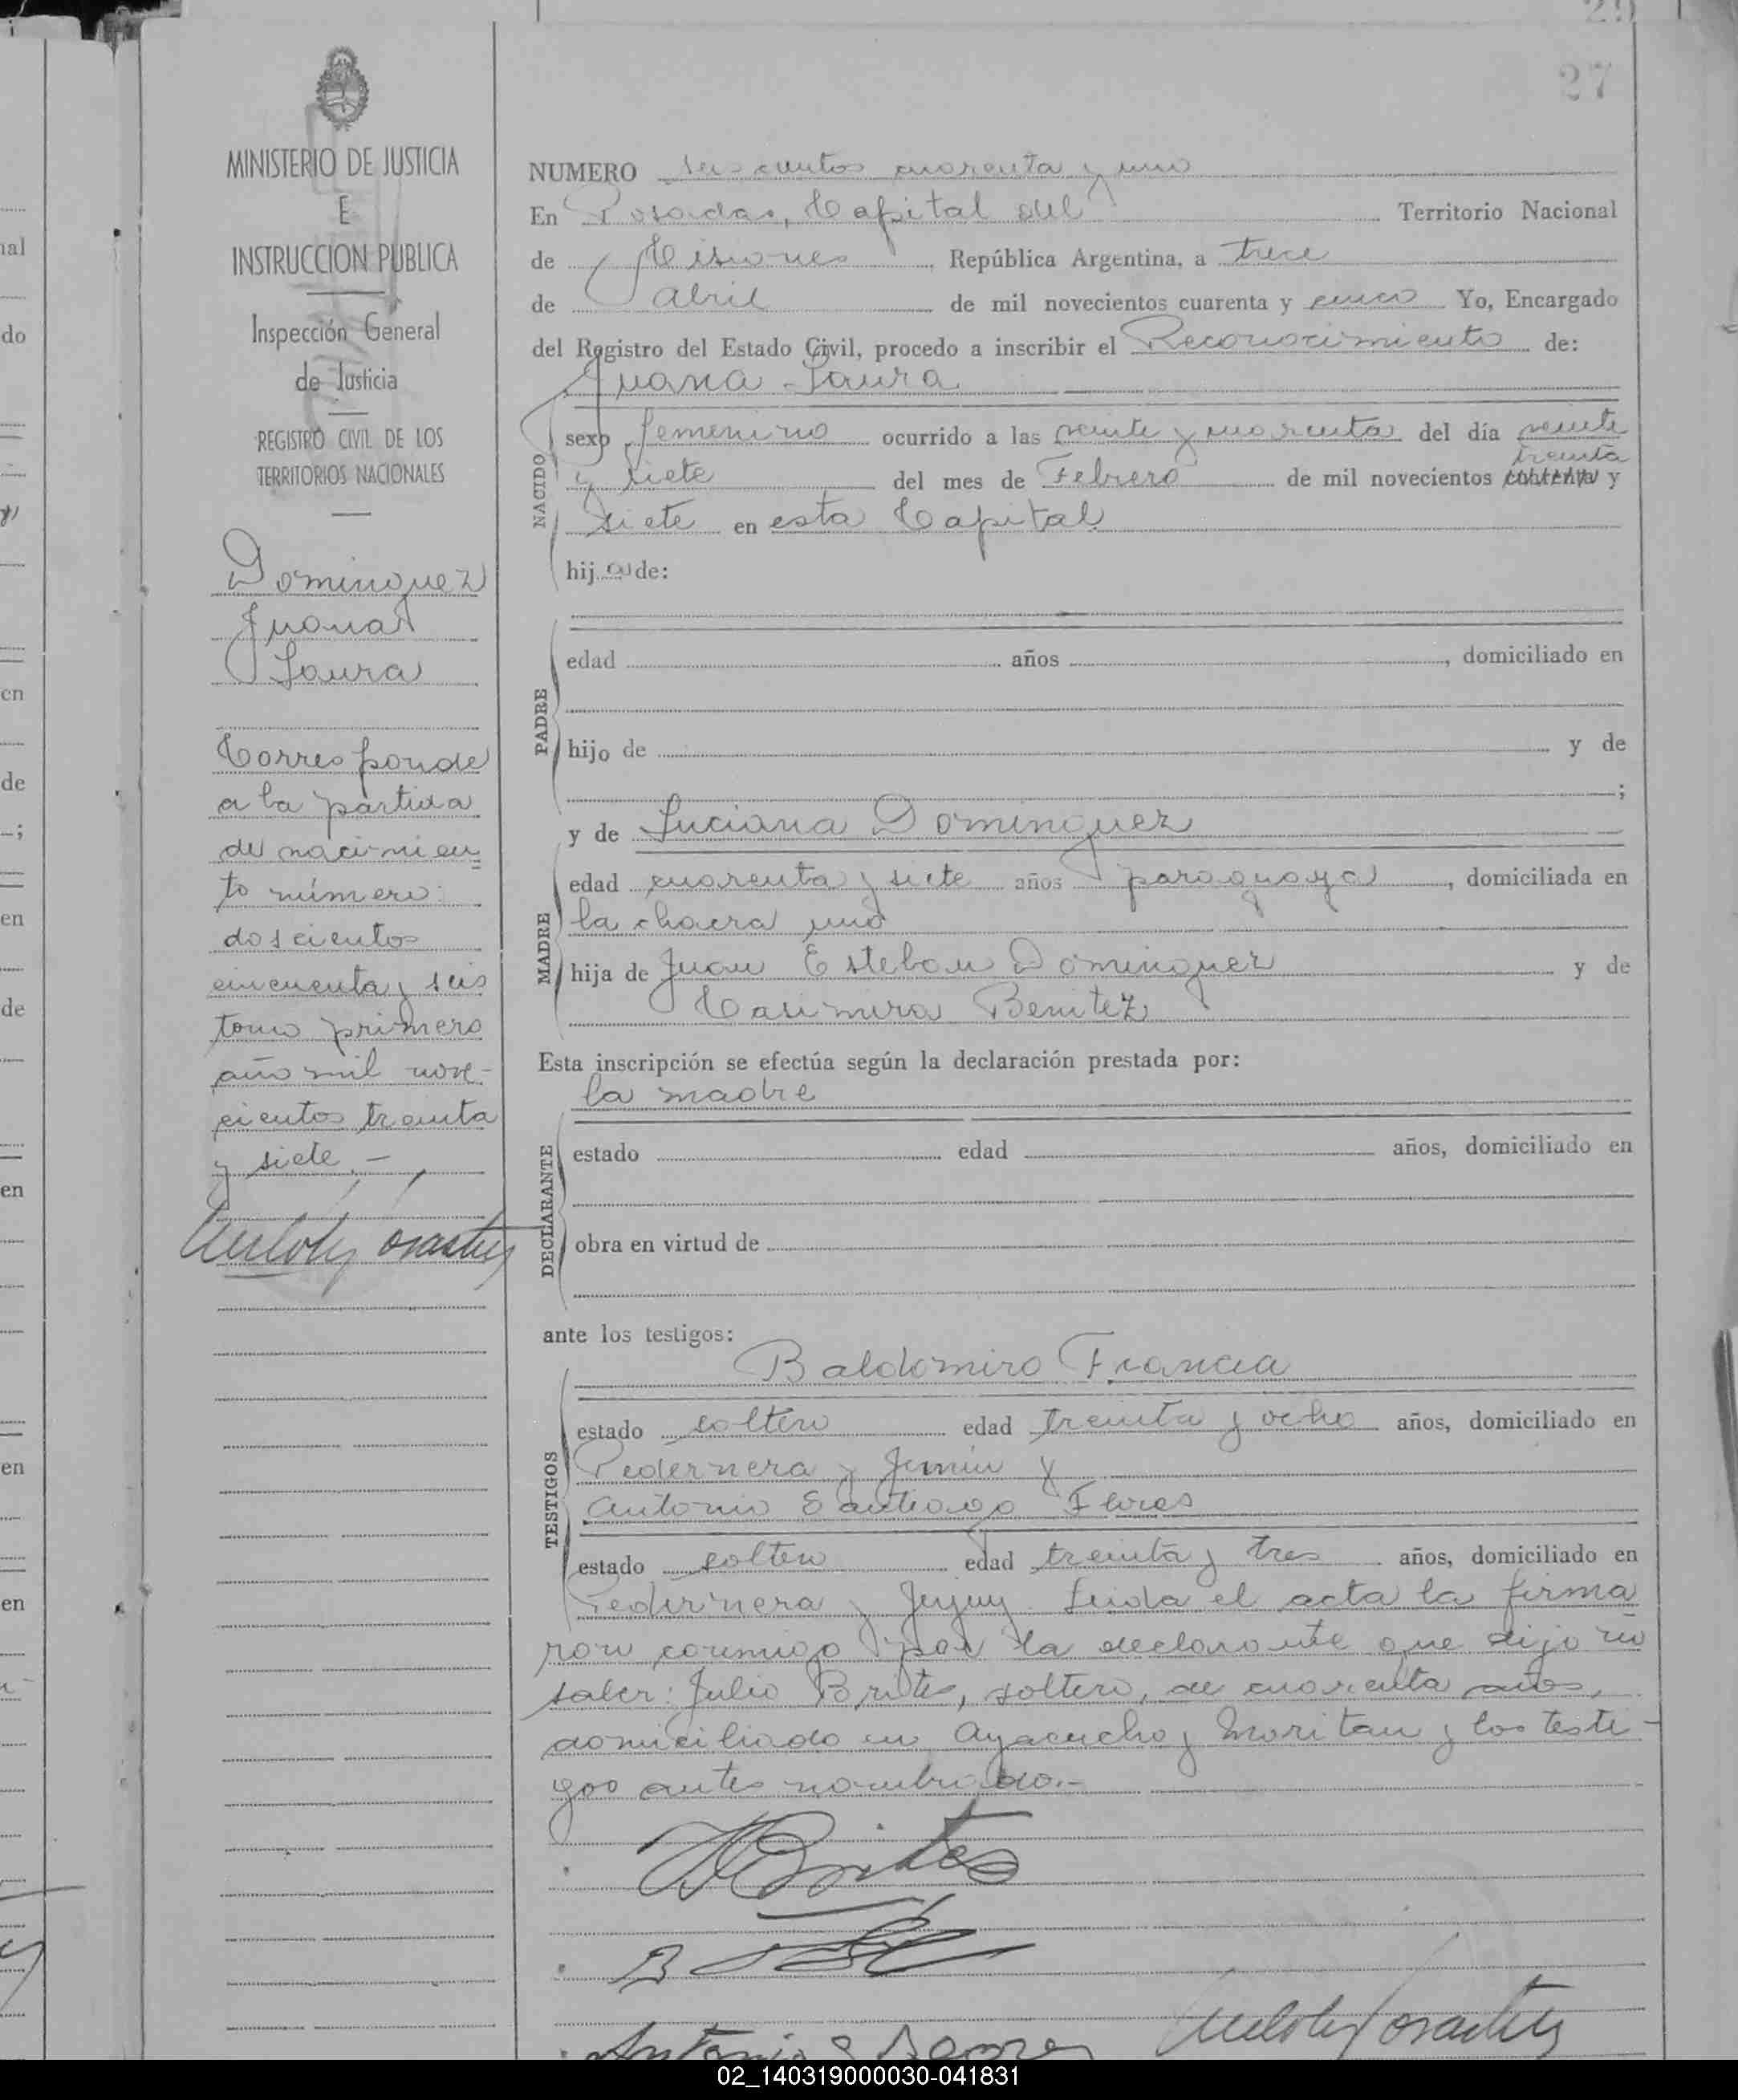 27
MINISTERIO DE JUSTICIA
E
INSTRUCCION PUBLICA
Inspección General
de Justicia
REGISTRO CIVIL DE LOS
TERRITORIOS NACIONALES
Dominguez
Juana
Laura
Corresponde
a la partida
de nacimien
to número:
doscientos
cincuenta y seis
tomo primero
año mil nove-
cientos treinta
y siete.-
NUMERO seiscientos cuarenta y uno
En Posadas, Capital del Territorio Nacional
de Misiones República Argentina, a trece
de abril de mil novecientos cuarenta y cinco Yo, Encargado
del Registro del Estado Civil, procedo a inscribir el Reconocimiento de:
Juana Laura
NACIDO
sexo femenino ocurrido a las veinte y cuarenta del día veinte
y siete del mes de Febrero de mil novecientos treinta y
siete en esta Capital
hija de:
PADRE
edad años , domiciliado en
hijo de y de
;
y de Luciana Dominguez
MADRE
edad cuarenta y siete años paraguaya, domiciliada en
la chacra uno
hija de Juan Esteban Dominguez y de
Casimira Benitez
Esta inscripción se efectúa según la declaración prestada por:
la madre
DECLARANTE
estado edad años, domiciliado en
obra en virtud de
ante los testigos:
Baldomiro Francia
TESTIGOS
estado soltero edad treinta y ocho años, domiciliado en
Pedernera y Junin y
Antonio Santiago Flores
estado soltero edad treinta y tres años, domiciliado en
Pedernera y Jujuy. Leida el acta la firma
ron conmigo por la declarante que dijo no
saber: Julio Brites, soltero, de cuarenta años,
domiciliado en Ayacucho y Moritan y los testi-
gos antes nombrado.-
Brites
Antonio S
02_140319000030-041831